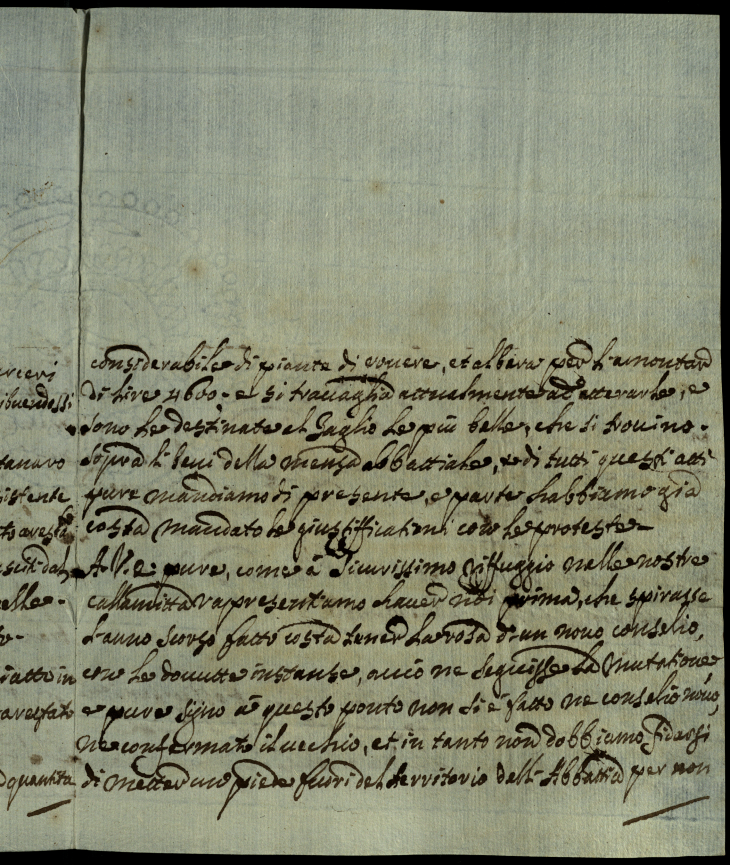 rceri
ibuendossi
tanaro
istente
to aresta
sciti dal
elle-
o-
iatto in
arestato
quantita
considerabile di piante di rovere, et albera per l'amontar
di lire 4600- e si travaglia attualmente ad atterarle, e
sono le destinate al Taglio le più belle, che si trovino-
sopra li beni della mensa abbattiale, e di tutti questi atti
pure mandiamo di presente, e parte habbiamo già
costà mandato le giustifficationi con le proteste-
A V.E. pure, come à sicurissimo riffuggio nelle nostre
callamittà rapresentiamo haver noi prima, che spirasse
l'anno scorso fatto costà tener la rosa d'un novo conselio,
con le dovutte instanse, acciò ne seguisse la mutatione
e pure sino à questo ponto non si è fatto ne conselio novo,
ne confermato il vecchio, et in tanto non dobbiamo fidarsi
di metter un piede fuori del territorio dell'Abbattia per non